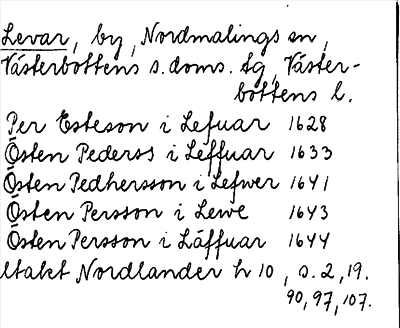 Levar, by, Nordmalings sn,
Västerbottens s. doms. tg, Väster-
bottens l.
Per Esteson i Lefuar 1628
Östen Pederss i Leffuar 1633
Östen Pedhersson i Lefwer 1641
Östen Persson i Lewe 1643
Östen Persson i Läffuar 1644
ltakt Nordlander h 10, s. 2, 19.
90, 97, 107.